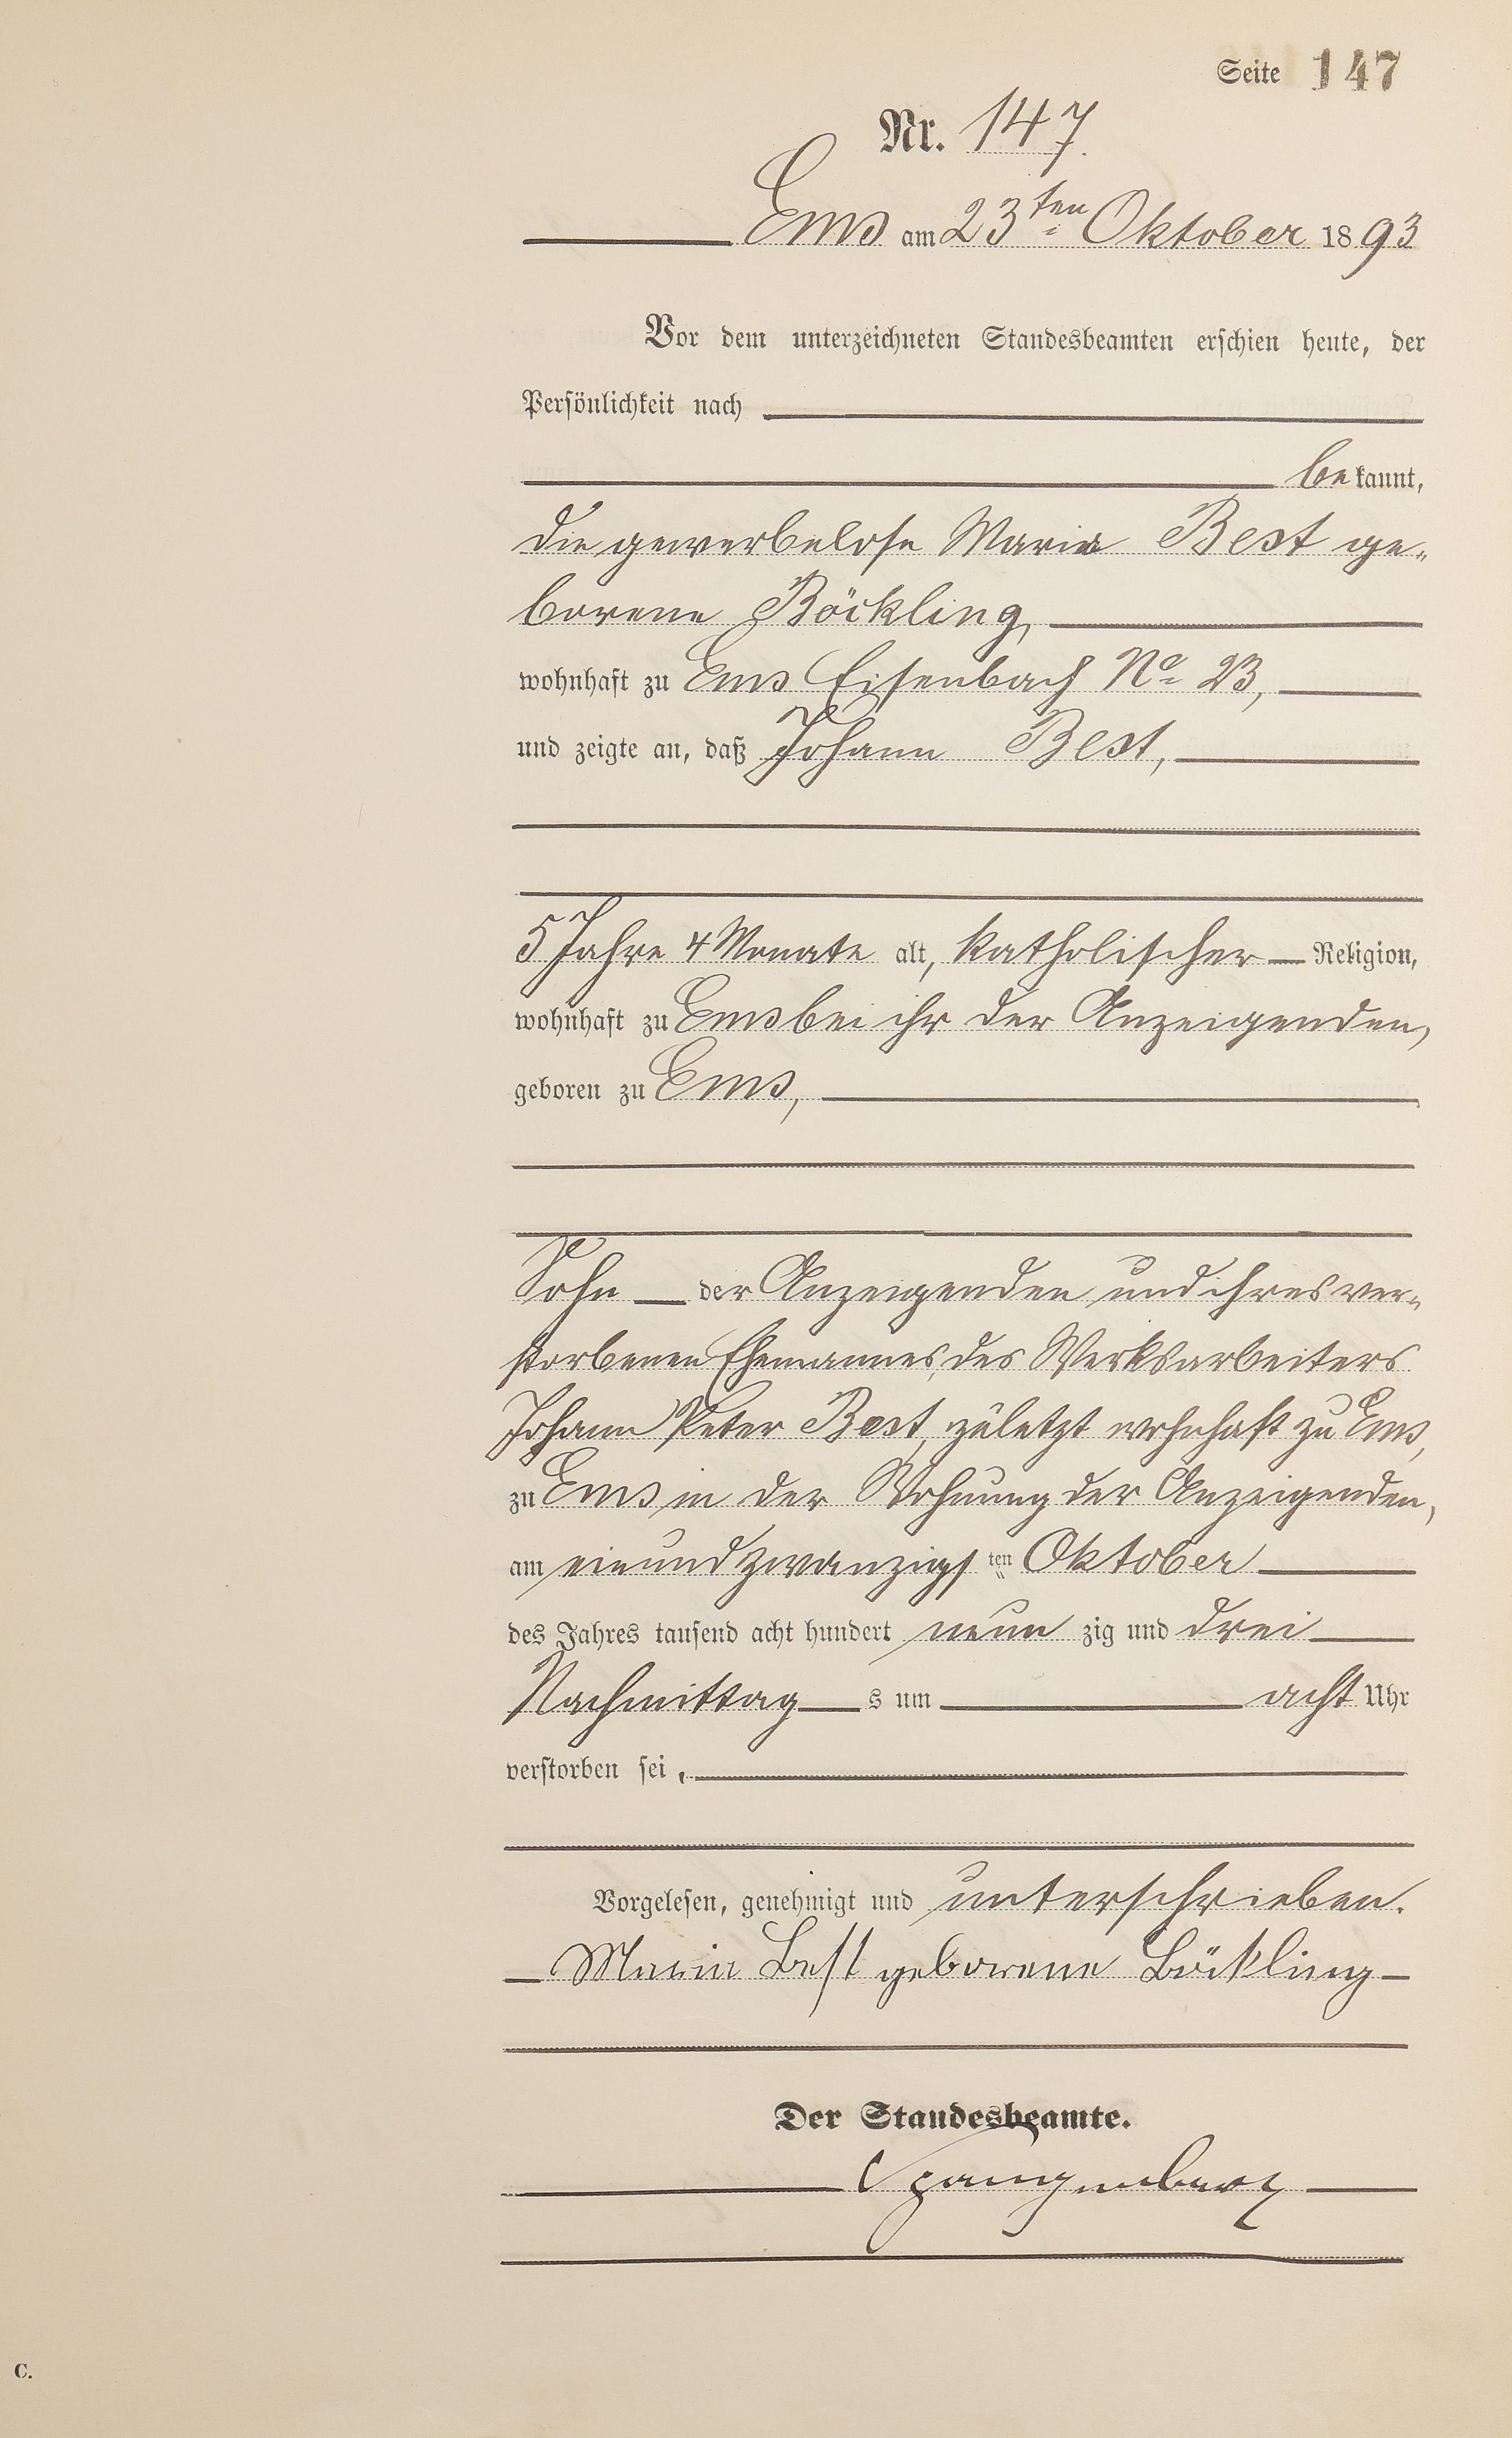 Seite 147
Nr. 147.
Ems am 23ten Oktober 1893
Vor dem unterzeichneten Standesbeamten erschien heute, der
Persönlichkeit nach
bekannt,
die gewerbelose Maria Best ge-
borene Böckling,
wohnhaft zu Ems Eisenbach No 23,
und zeigte an, daß Johann Best,
5 Jahre 4 Monate alt, katholischer Religion,
wohnhaft zu Ems bei ihr der Anzeigenden,
geboren zu Ems,
Sohn der Anzeigenden und ihres ver-
storbenen Ehemannes, des Werksarbeiters
Johann Peter Best, zuletzt wohnhaft zu Ems,
zu Ems in der Wohnung der Anzeigenden,
am einundzwanzigsten Oktober
des Jahres tausend acht hundert neunzig und drei
Nachmittags um acht Uhr
verstorben sei,
Vorgelesen, genehmigt und unterschrieben.
Maria Best geborene Böckling
Der Standesbeamte.
Spangenberg
C.